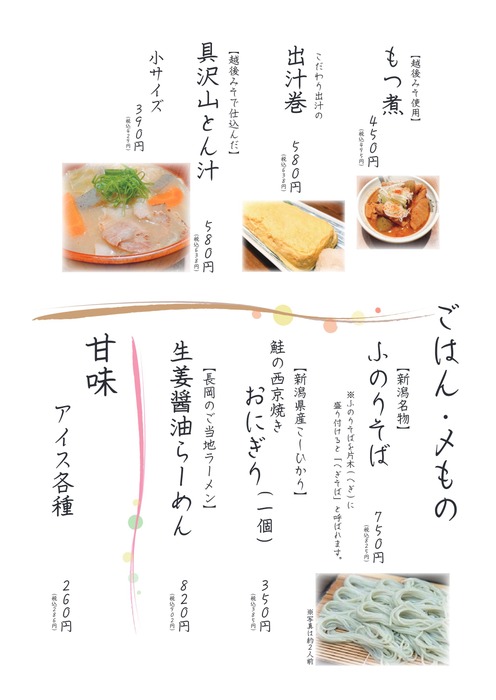 【越後みそ使用】
もつ煮
450円
（税込495円）
こだわり出汁の
出汁巻
580円
（税込638円）
【越後みそで仕込んだ】
具沢山とん汁
580円
（税込638円）
小サイズ
390円
（税込429円）
ごはん・〆もの
【新潟名物】
ふのりそば
※ふのりそばを片木（へぎ）に
盛り付けると「へぎそば」と呼ばれます。
750円
（税込825円）
※写真は約2人前
【新潟県産こしひかり】
鮭の西京焼き
おにぎり（一個）
350円
（税込385円）
【長岡のご当地ラーメン】
生姜醤油らーめん
820円
（税込902円）
甘味
アイス各種
260円
（税込286円）